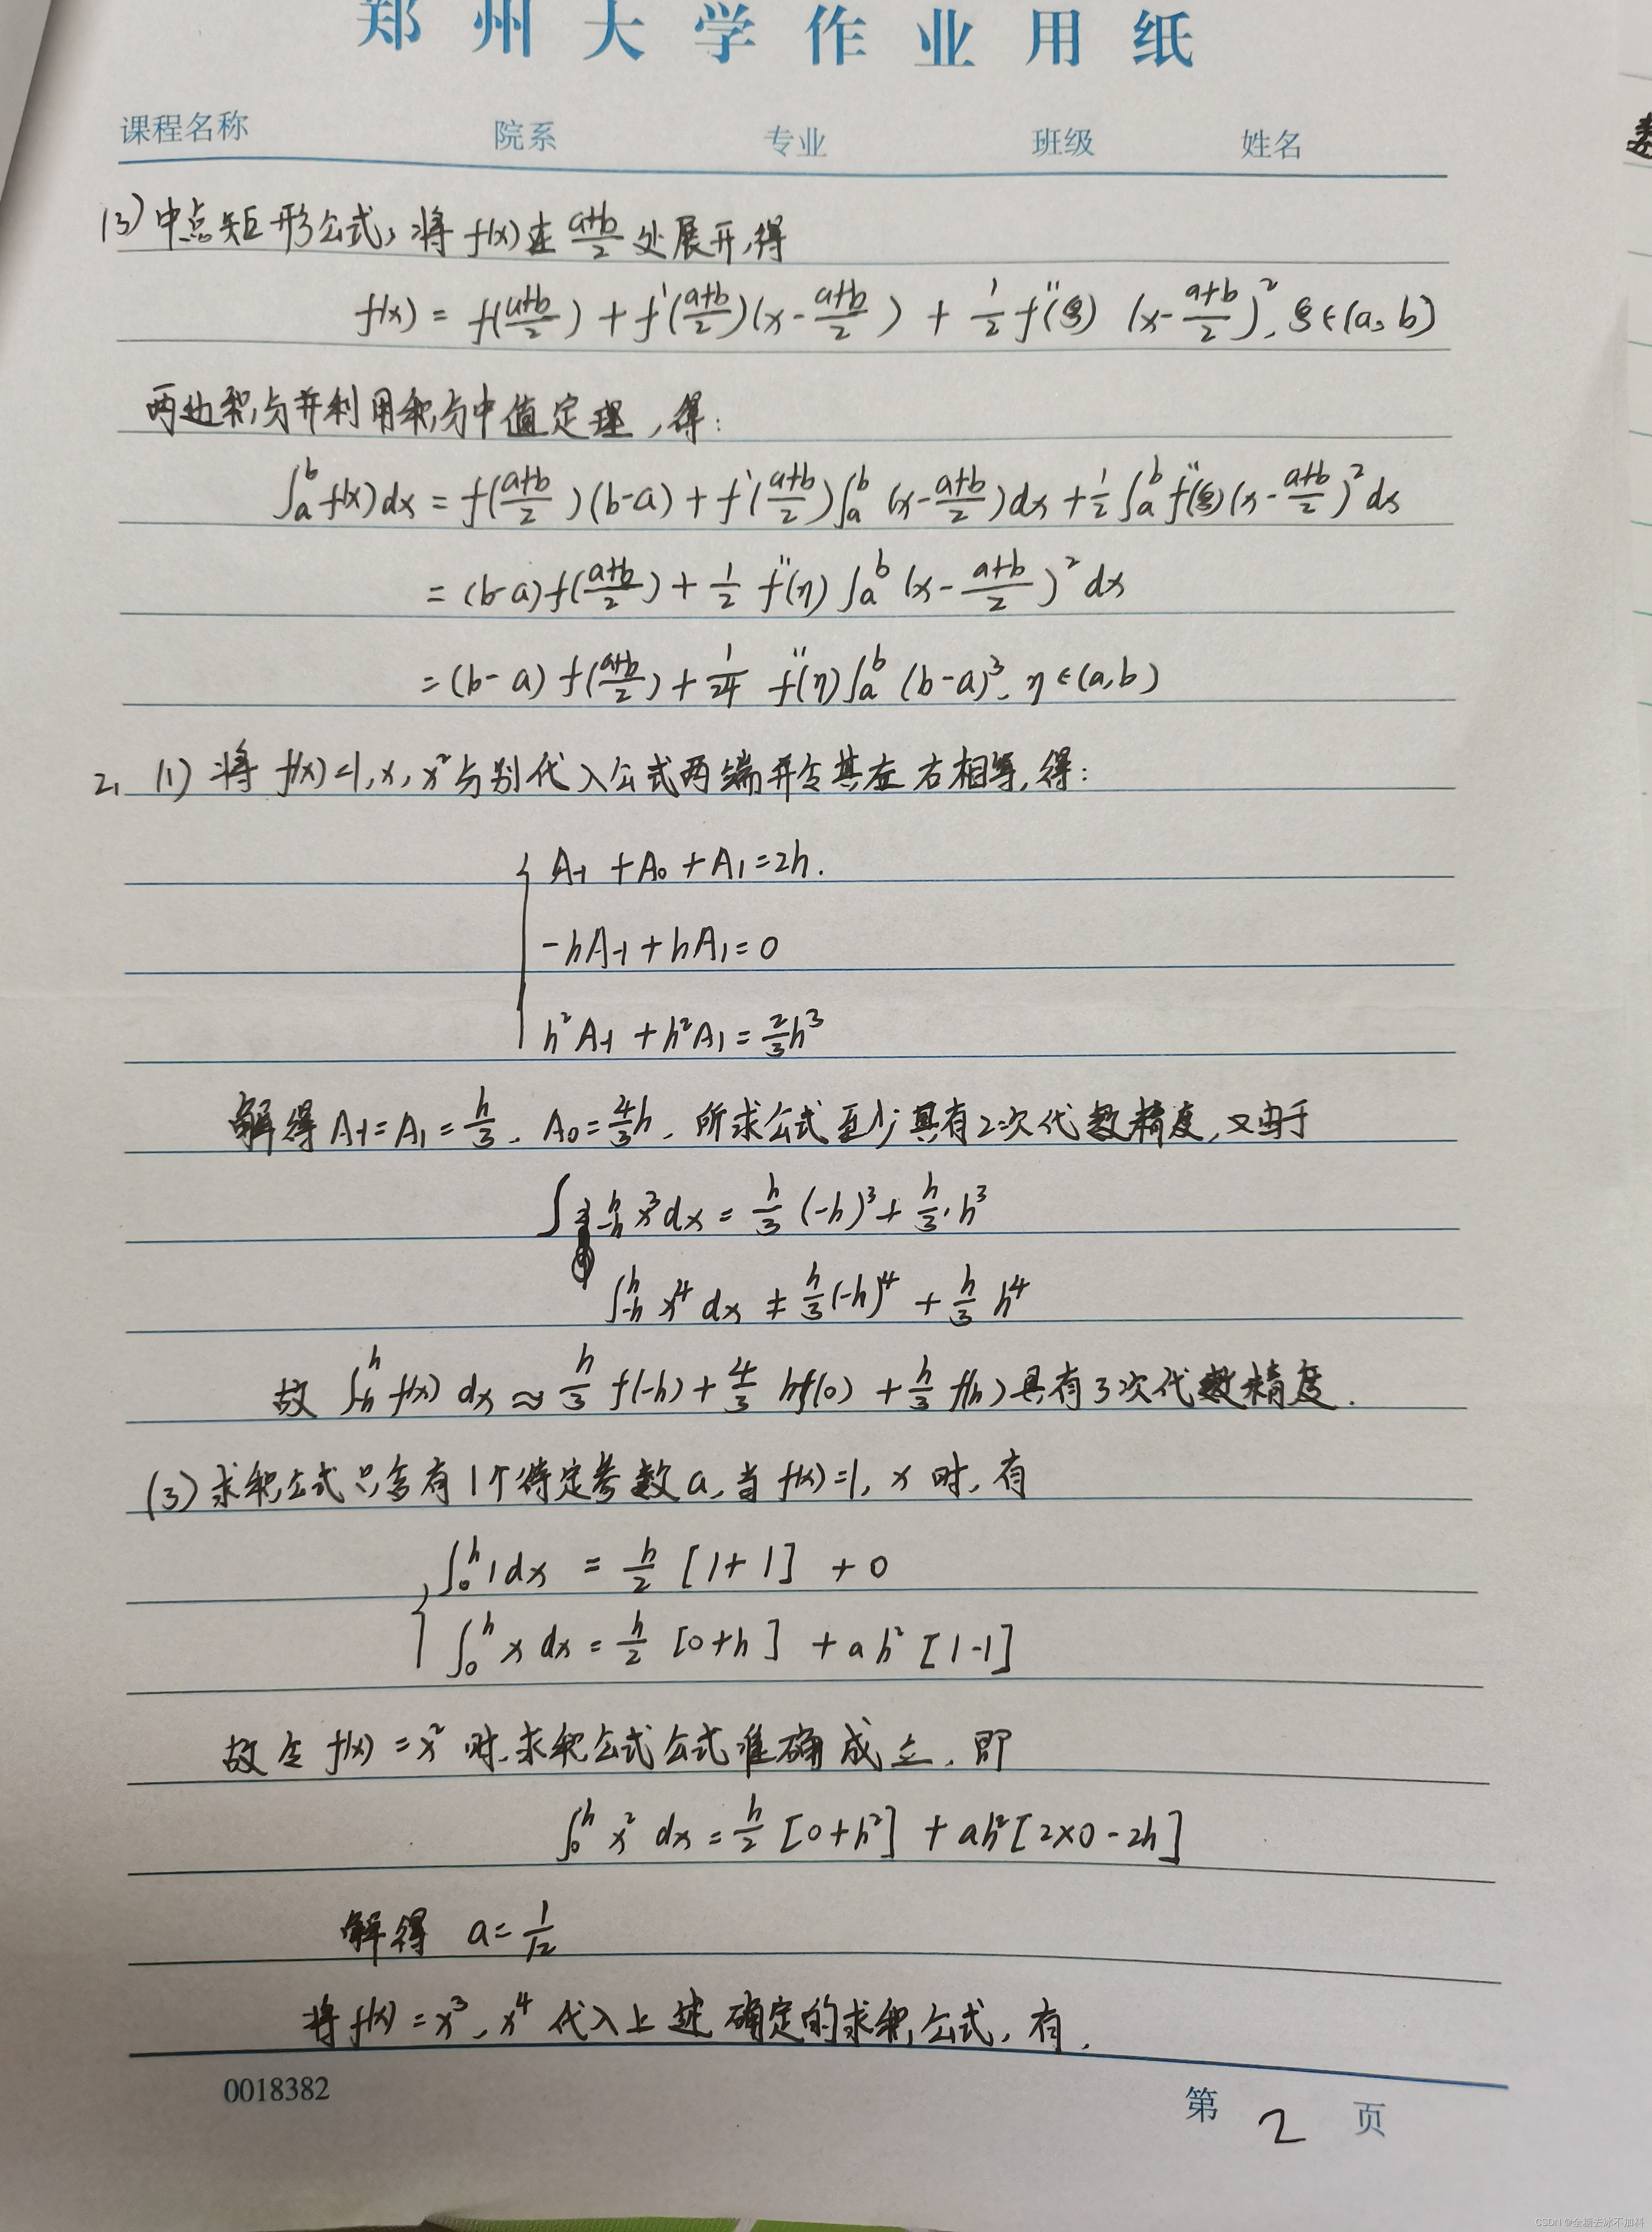 郑州大学作业用纸
课程名称 院系 专业 班级 姓名
(3) 中点矩形公式,将 f(x) 在 (a+b)/2 处展开,得
f(x) = f((a+b)/2) + f'((a+b)/2)(x - (a+b)/2) + 1/2 f''(ξ) (x - (a+b)/2)², ξ∈(a, b)
两边积分并利用积分中值定理,得:
∫_a^b f(x)dx = f((a+b)/2)(b-a) + f'((a+b)/2)∫_a^b (x - (a+b)/2)dx + 1/2 ∫_a^b f''(ξ)(x - (a+b)/2)² dx
= (b-a) f((a+b)/2) + 1/2 f''(η) ∫_a^b (x - (a+b)/2)² dx
= (b-a) f((a+b)/2) + 1/24 f''(η) ∫_a^b (b-a)³, η∈(a,b)
2. (1) 将 f(x)=1, x, x² 分别代入公式两端并令其左右相等,得:
A₋₁ + A₀ + A₁ = 2h.
-hA₋₁ + hA₁ = 0
h²A₋₁ + h²A₁ = 2/3 h³
解得 A₋₁ = A₁ = h/3, A₀ = 4/3 h, 所求公式至少具有2次代数精度,又由于
∫_-h^h x³dx = h/3 (-h)³ + h/3 · h³
∫_-h^h x⁴ dx ≠ h/3 (-h)⁴ + h/3 h⁴
故 ∫_-h^h f(x) dx ≈ h/3 f(-h) + 4/3 hf(0) + h/3 f(h) 具有3次代数精度.
(3) 求积公式只含有1个待定参数a,当 f(x)=1, x 时,有
∫_0^h 1dx = h/2 [1+1] + 0
∫_0^h x dx = h/2 [0+h] + ah² [1-1]
故令 f(x) = x² 时,求积公式公式准确成立,即
∫_0^h x² dx = h/2 [0+h²] + ah²[2×0-2h]
解得 a = 1/12
将 f(x) = x³, x⁴ 代入上述确定的求积公式,有,
0018382
第 2 页
CSDN @全糖去冰不加料